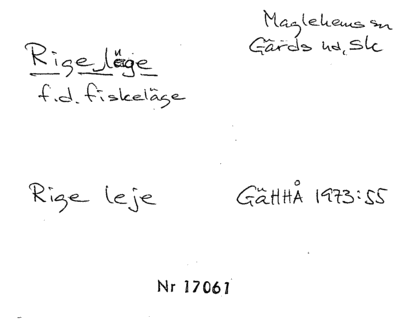 Maglehems sn
Gärds hd, Sk
Rigeläge
f.d. fiskeläge
Rige leje
GäHHÅ 1973:55
Nr 17061